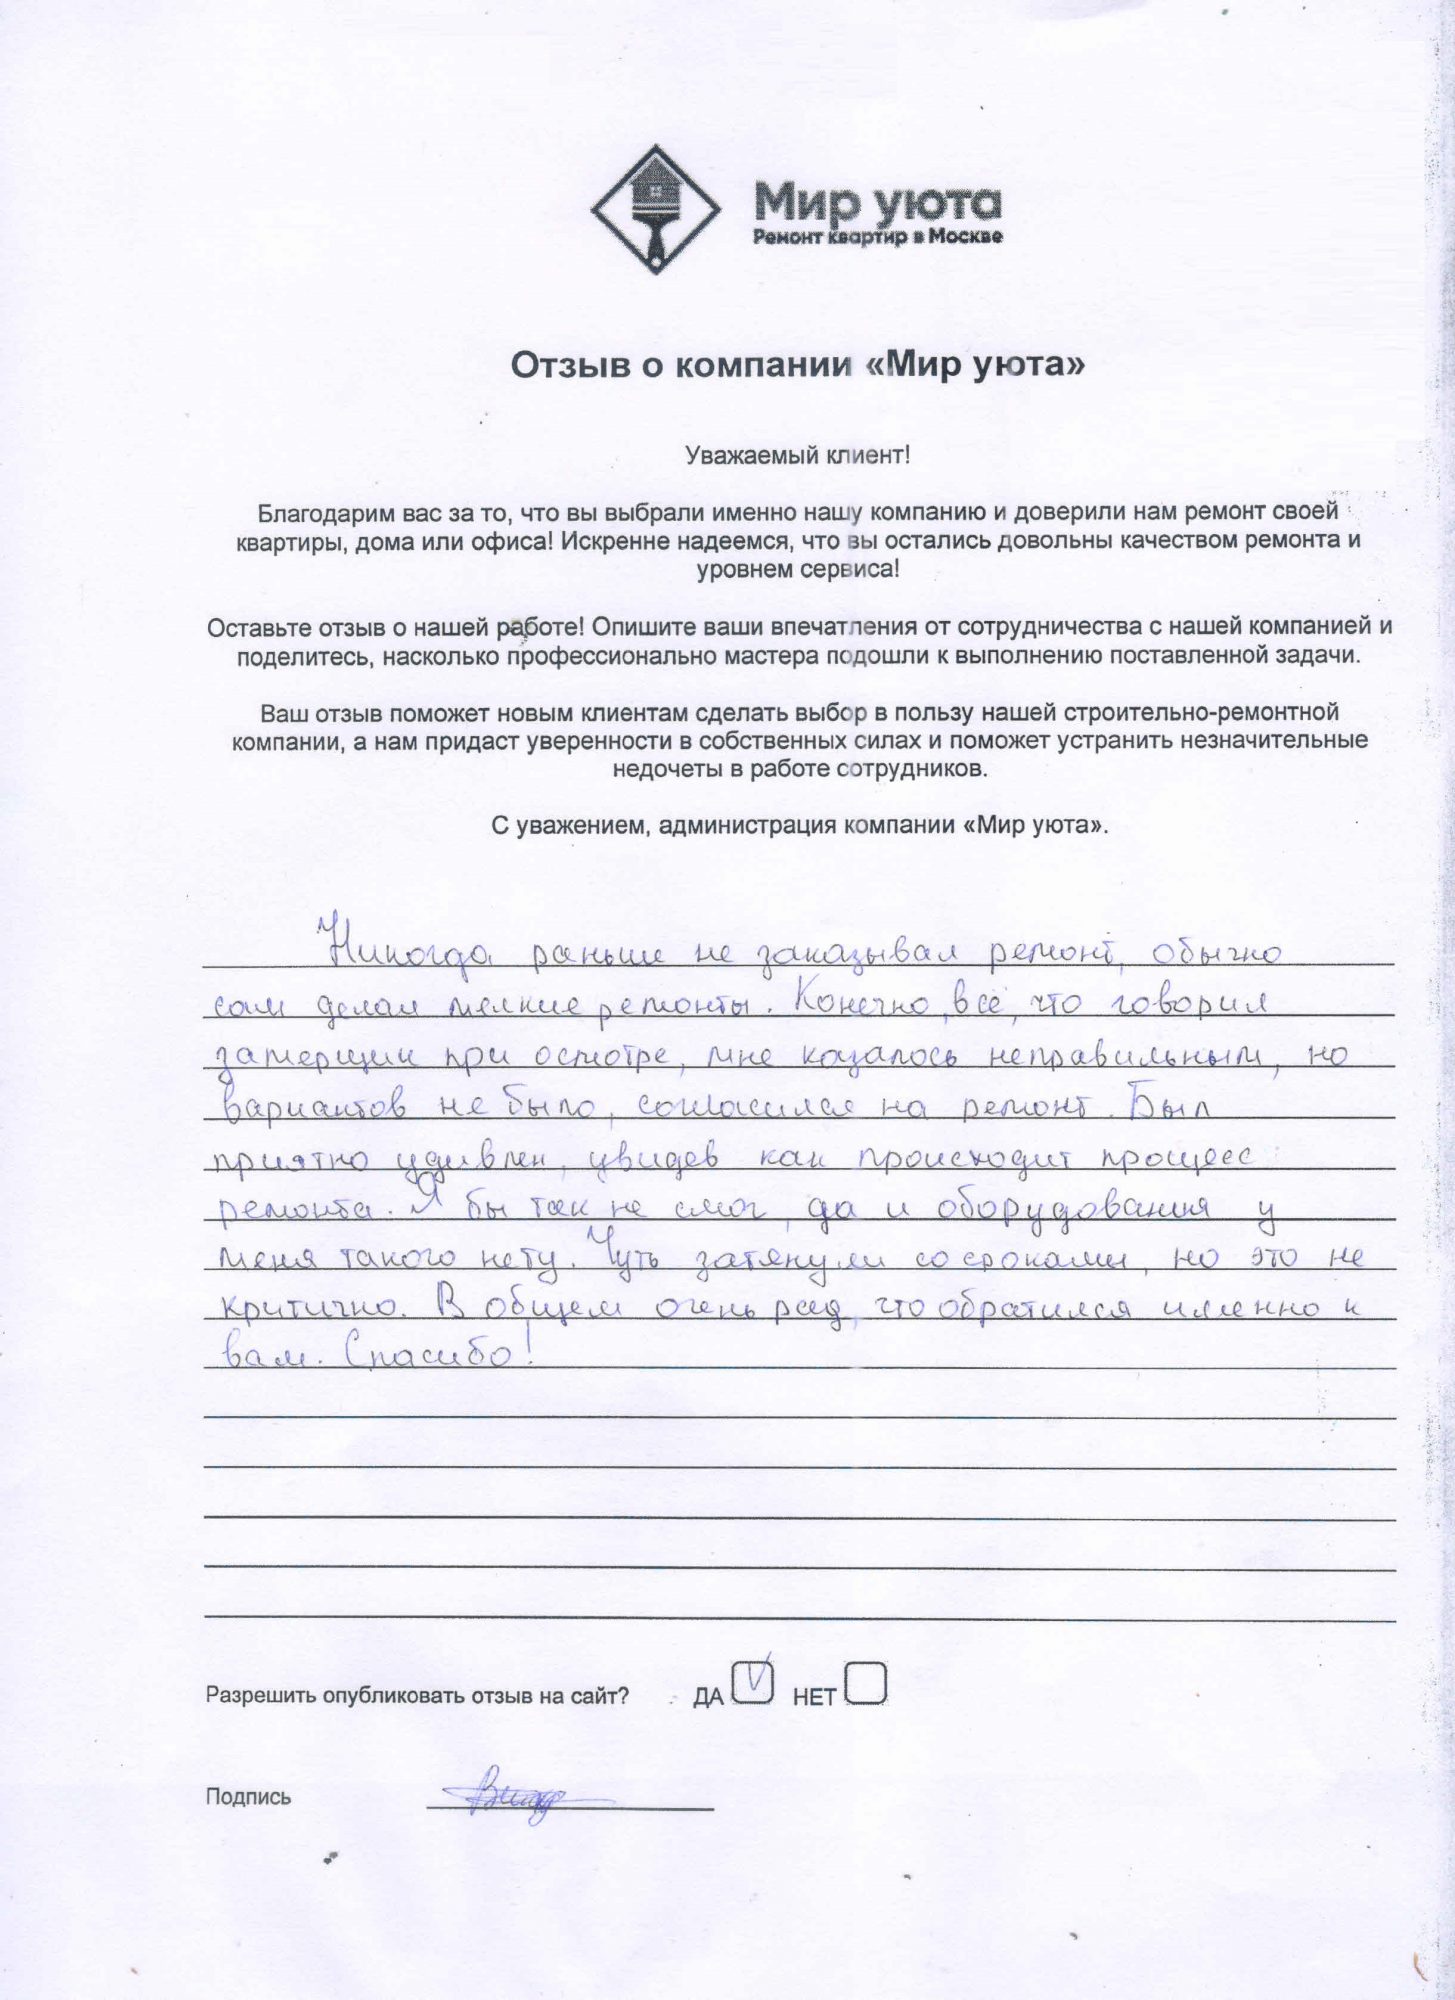 Мир уюта
Ремонт квартир в Москве
Отзыв о компании «Мир уюта»
Уважаемый клиент!
Благодарим вас за то, что вы выбрали именно нашу компанию и доверили нам ремонт своей
квартиры, дома или офиса! Искренне надеемся, что вы остались довольны качеством ремонта и
уровнем сервиса!
Оставьте отзыв о нашей работе! Опишите ваши впечатления от сотрудничества с нашей компанией и
поделитесь, насколько профессионально мастера подошли к выполнению поставленной задачи.
Ваш отзыв поможет новым клиентам сделать выбор в пользу нашей строительно-ремонтной
компании, а нам придаст уверенности в собственных силах и поможет устранить незначительные
недочеты в работе сотрудников.
С уважением, администрация компании «Мир уюта».
Никогда раньше не заказывал ремонт, обычно
сам делал мелкие ремонты. Конечно, всё, что говорил
замерщик при осмотре, мне казалось неправильным, но
вариантов не было, согласился на ремонт. Был
приятно удивлен, увидев как происходит процесс
ремонта. Я бы так не смог, да и оборудования у
меня такого нету. Чуть затянули со сроками, но это не
критично. В общем очень рад, что обратился именно к
вам. Спасибо!
Разрешить опубликовать отзыв на сайт? ДА НЕТ
Подпись